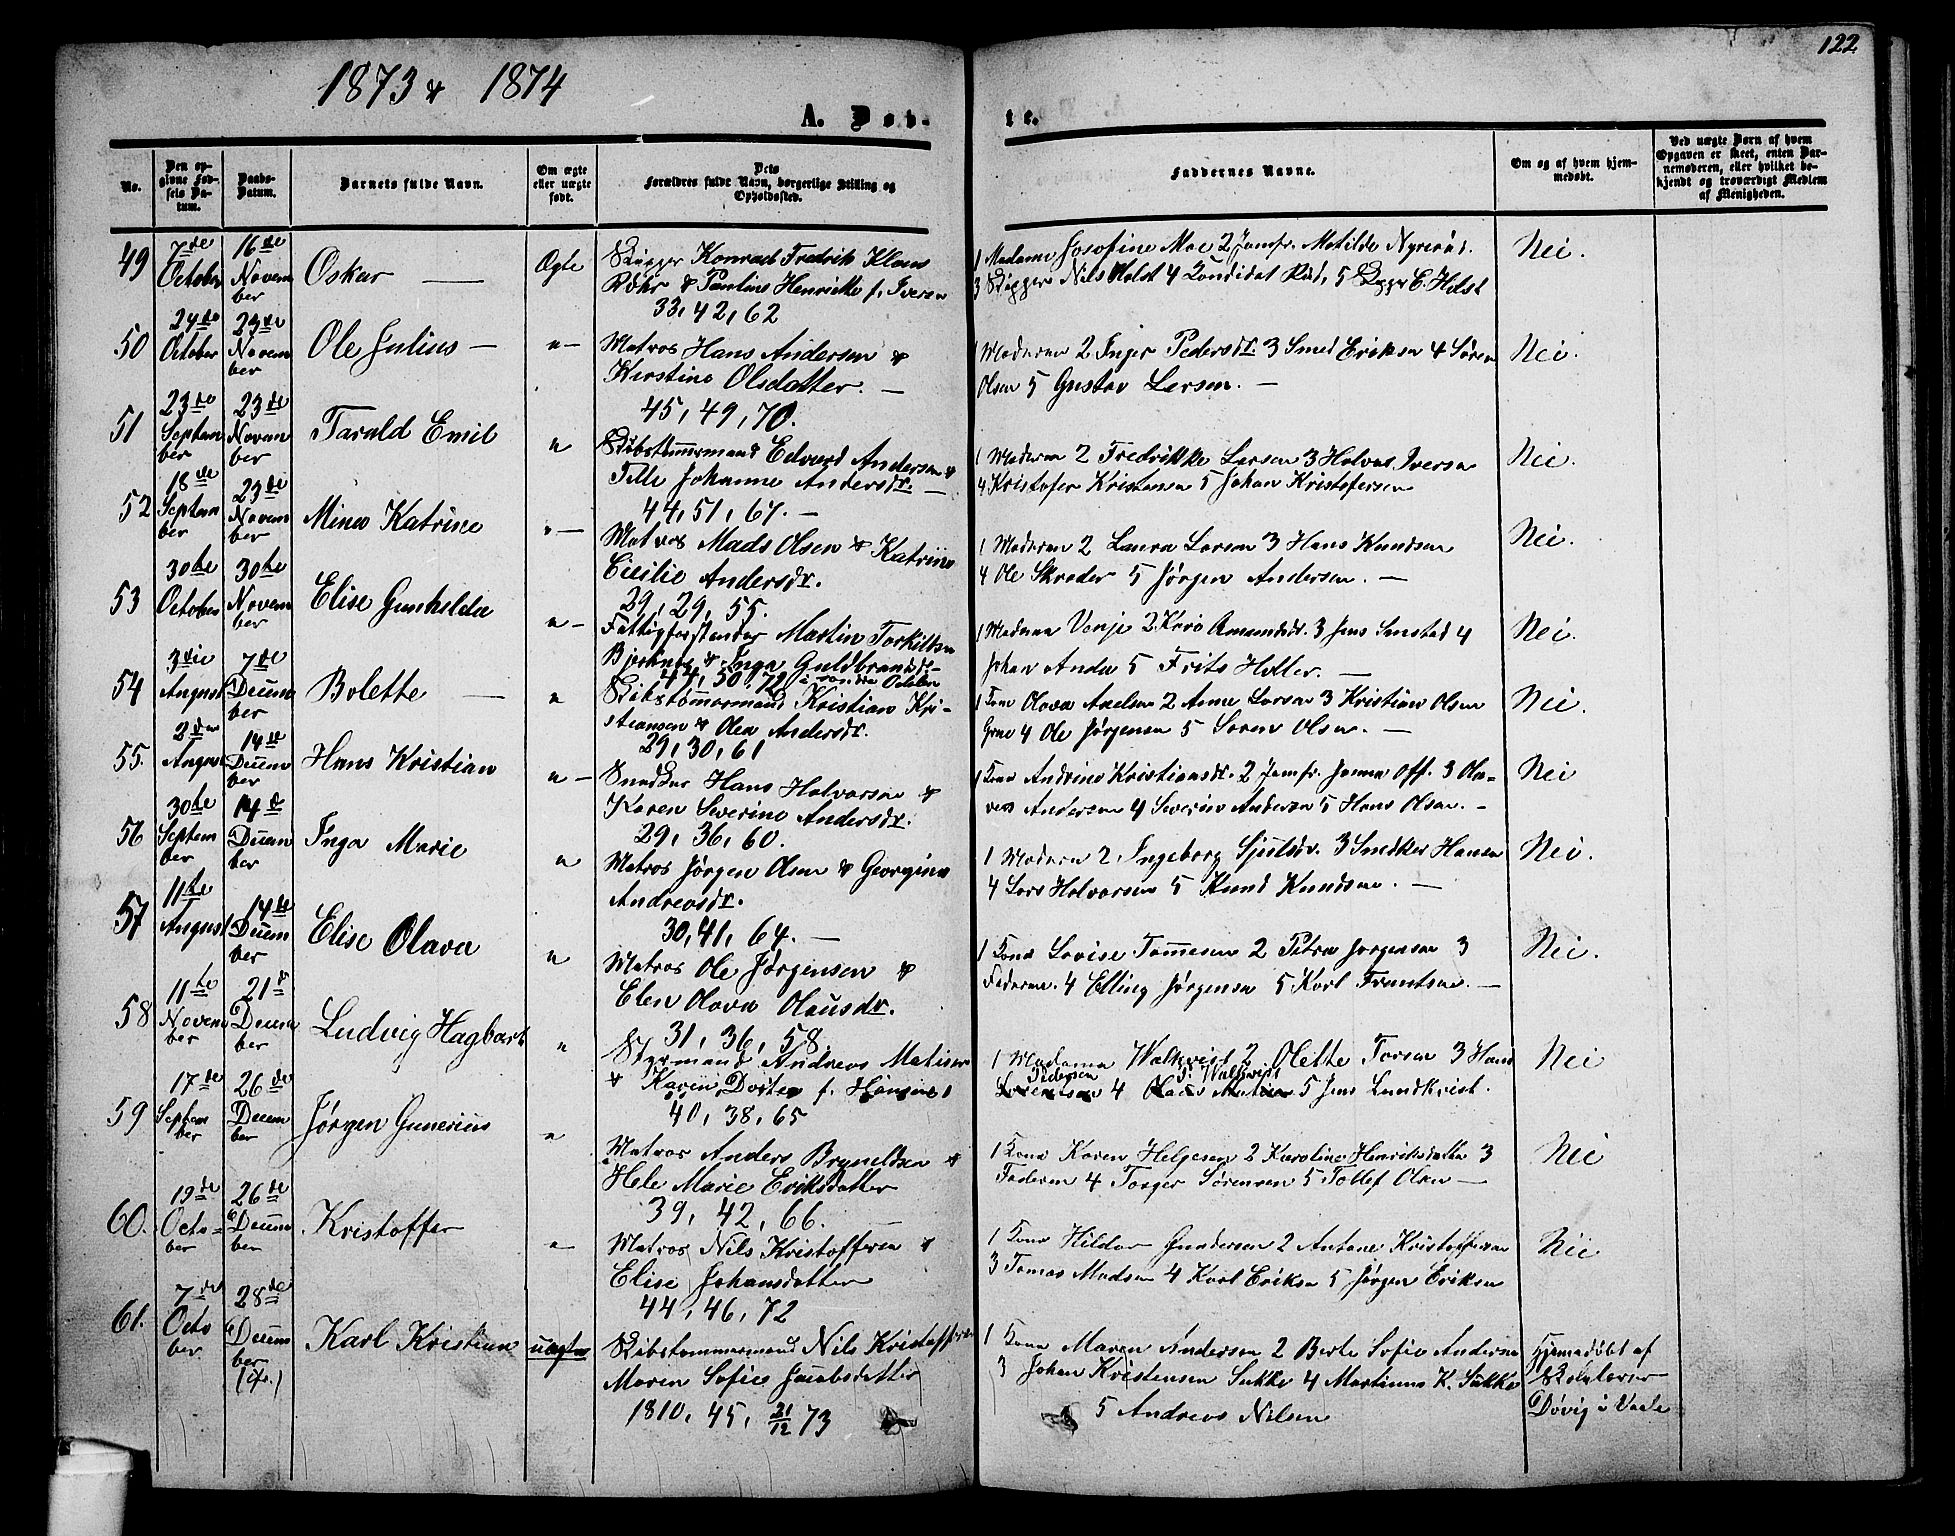 122
1873 & 1874
A. Døb-
te.
No.
Den opgivne Fødsels Datum.
Daabs-Datum.
Barnets fulde Navn.
Om ægte eller uægte født.
Dets Forældres fulde Navn, borgerlige Stilling og Opholdssted.
Faddernes Navne.
Om og af hvem hjemmedøbt.
Ved uægte Børn af hvem Opgaven er skeet, enten Barnemoderen, eller hvilket bekjendt og troværdigt Medlem af Menigheden.
49 7de October 16de November Oskar — Ægte
Skipper Konrad Fredrik Klaus
Röhr & Pauline Henrikke f. Iversen
33, 42, 62
1 Madame Josefine Moe 2 Jomfr. Matilde Nyrerød.
3 Skipper Nils Holst 4 Kandidat Rud, 5 E. Holst
Nei.
50 24de October 23de November Ole Julius — " —
Matros Hans Andersen &
Kirstine Olsdatter. —
45, 49, 70.
1 Moderen 2 Inger Pedersdr. 3 Smed Eriksen 4 Søren
Olsen 5 Gustav Larsen. —
Nei.
51 23de September 23de November Tarald Emil "
Skibstømmermand Edvard Andersen &
Tille Johanne Andersdr. —
44, 51, 67. —
1 Moderen 2 Fredrikke Larsen 3 Halvor Iversen
4 Kristofer Kristensen 5 Johan Kristofersen
Nei.
52 18de September 23de November Mina Katrine " —
Matros Mads Olsen & Katrine
Cicilie Andersdr.
29, 29, 55.
1 Moderen 2 Laura Larsen 3 Hans Knudsen
4 Ole Skrøder 5 Jørgen Andersen. —
Nei.
53 30te October 30te November Elise Gunhilda " —
Fattigforstander Martin Torkilsen
& Inga Guldbrandsdr.
44, 50, 72
1 Madame Venje 2 Karo Amundsdr. 3 Jens Smstad 4
Johan Anda 5 Frits Holler. —
Nei.
54 3die August 7de December Bolette — "
Skibstømmermand Kristian Kristiansen & Olea Andersdr.
29, 30, 61
1 Kone Olava Axelsen 2 Anne Larsen 3 Kristian Olsen
4 Ole Jørgensen 5 Soren Olsen. —
Nei.
55. August 14de December Hans Kristian " —
Snedker Hans Halvorsen &
Karen Severine Andersdr.
29, 36, 60.
1 Kone Andrine Kristiansdr. 2 Jomfr. Off. 3 Olaves Andersen 4 Severin Andersen 5 Hans Olsen. —
Nei
56 30te September 14de December Inga Marie "
Matros Jørgen Olsen & Georgine
Andreasdr.
30, 41, 64. —
1 Moderen 2, Ingeborg 3 Snedker Hansen
4 Lars Halvorsen 5 Knud Knudsen. —
Nei.
57 11te August 14de December Elise Olava "
Matros Ole Jørgensen &
Elen Olava Olausdr.
31, 36, 58.
1 Kone Lovise Tomesen 2 Petra Jorgensen 3
Faderen. 4 Elling Jørgensen 5 Karl Frantsen. —
Nei.
58 11te November 21de December Ludvig Hagbart "
Styrmand Andreas Matisen
& Karen Dortea f. Hansen
40, 38, 65
1 Madame Walkvist 2 Olette Torsen 3 Hans
Pedersen 4 Walkvist 5 Jens Lundkvist.
Nei
59 17de September 26de December Jørgen Gunerius "
Matros Anders Bryneldsen &
Hele Marie Eriksdatter
39, 42, 66.
1 Kone Karen Helgesen 2 Karoline Henriksdatter 3
Faderen 4 Torger Sørensen 5 Tollef Olsen —
Nei
60. 19de October 26de December Kristoffer "
Matros Nils Kristoffersen &
Elise Johansdatter
44, 46, 72
1 Kone Hilda Gundersen 2 Antone Kristoffersen
3 Tomas Madsen 4 Karl Eriksen 5 Jørgen Eriksen
Nei
61. 7de October 28de December Karl Kristian uægte
Skibstømmermand Nils Kristoffersen
Maren Sofie Jacobsdatter
1810, 45, 21/12 73
1 Kone Maren Andersen 2 Berte Sofie Andersen
3 Johan Kristensen Sukke 4 Martinus K. Sukke
5 Andreas Nilsen
Hjemmedøbt af
Skolelærer
Døvig i Vaale